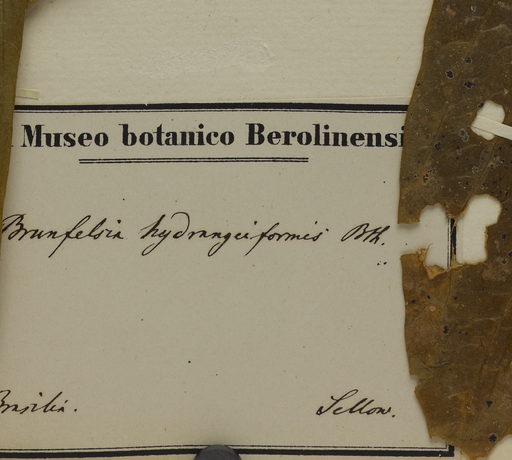 Museo botanico Berolinensi
Brunfelsia hydrangeiformis Bth.
Brasilia.
Sellow.